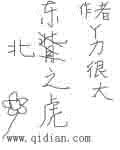 作者丫力很大
东之虎
北
www.qidian.com